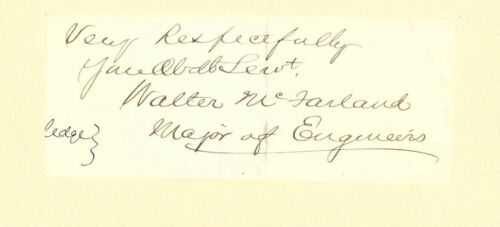 Very Respectfully
Your Obdt Servt.
Walter McFarland
Major of Engineers
ledge}